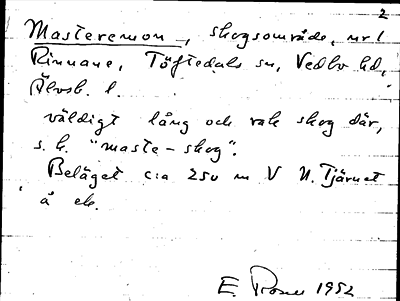 2
Masteremon, skogsområde, nr 1
Rinnane, Töftedals sn, Vedbo hd,
Älvsb. l.
väldigt lång och rak skog där,
s. k. "maste-skog".
Beläget c:a 250 m V N. Tjärnet
å ek.
E. 1952